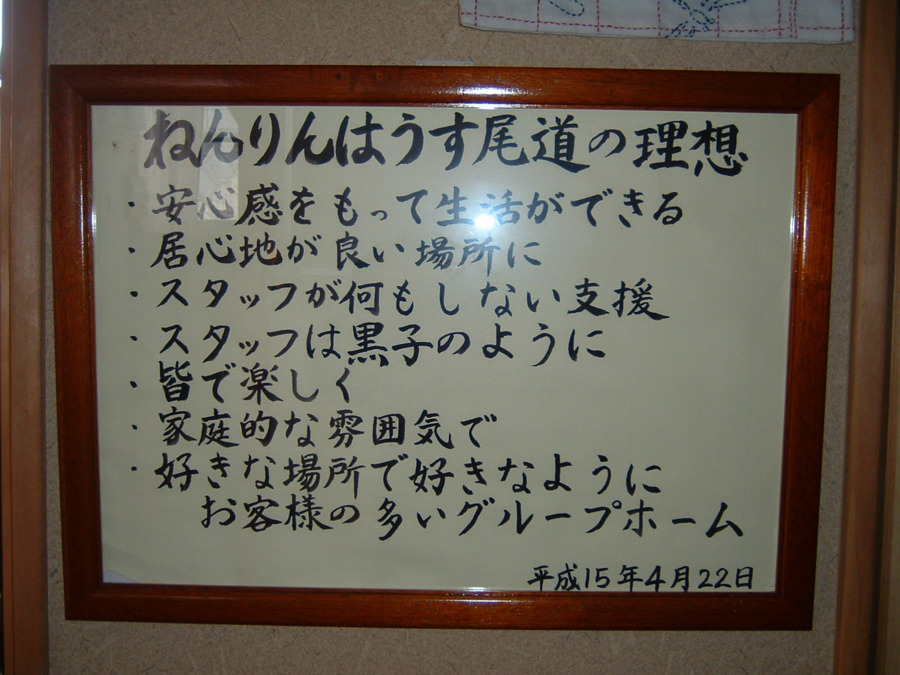 ねんりんはうす尾道の理想
・安心感をもって生活ができる
・居心地が良い場所に
・スタッフが何もしない支援
・スタッフは黒子のように
・皆で楽しく
・家庭的な雰囲気で
・好きな場所で好きなように
お客様の多いグループホーム
平成15年4月22日